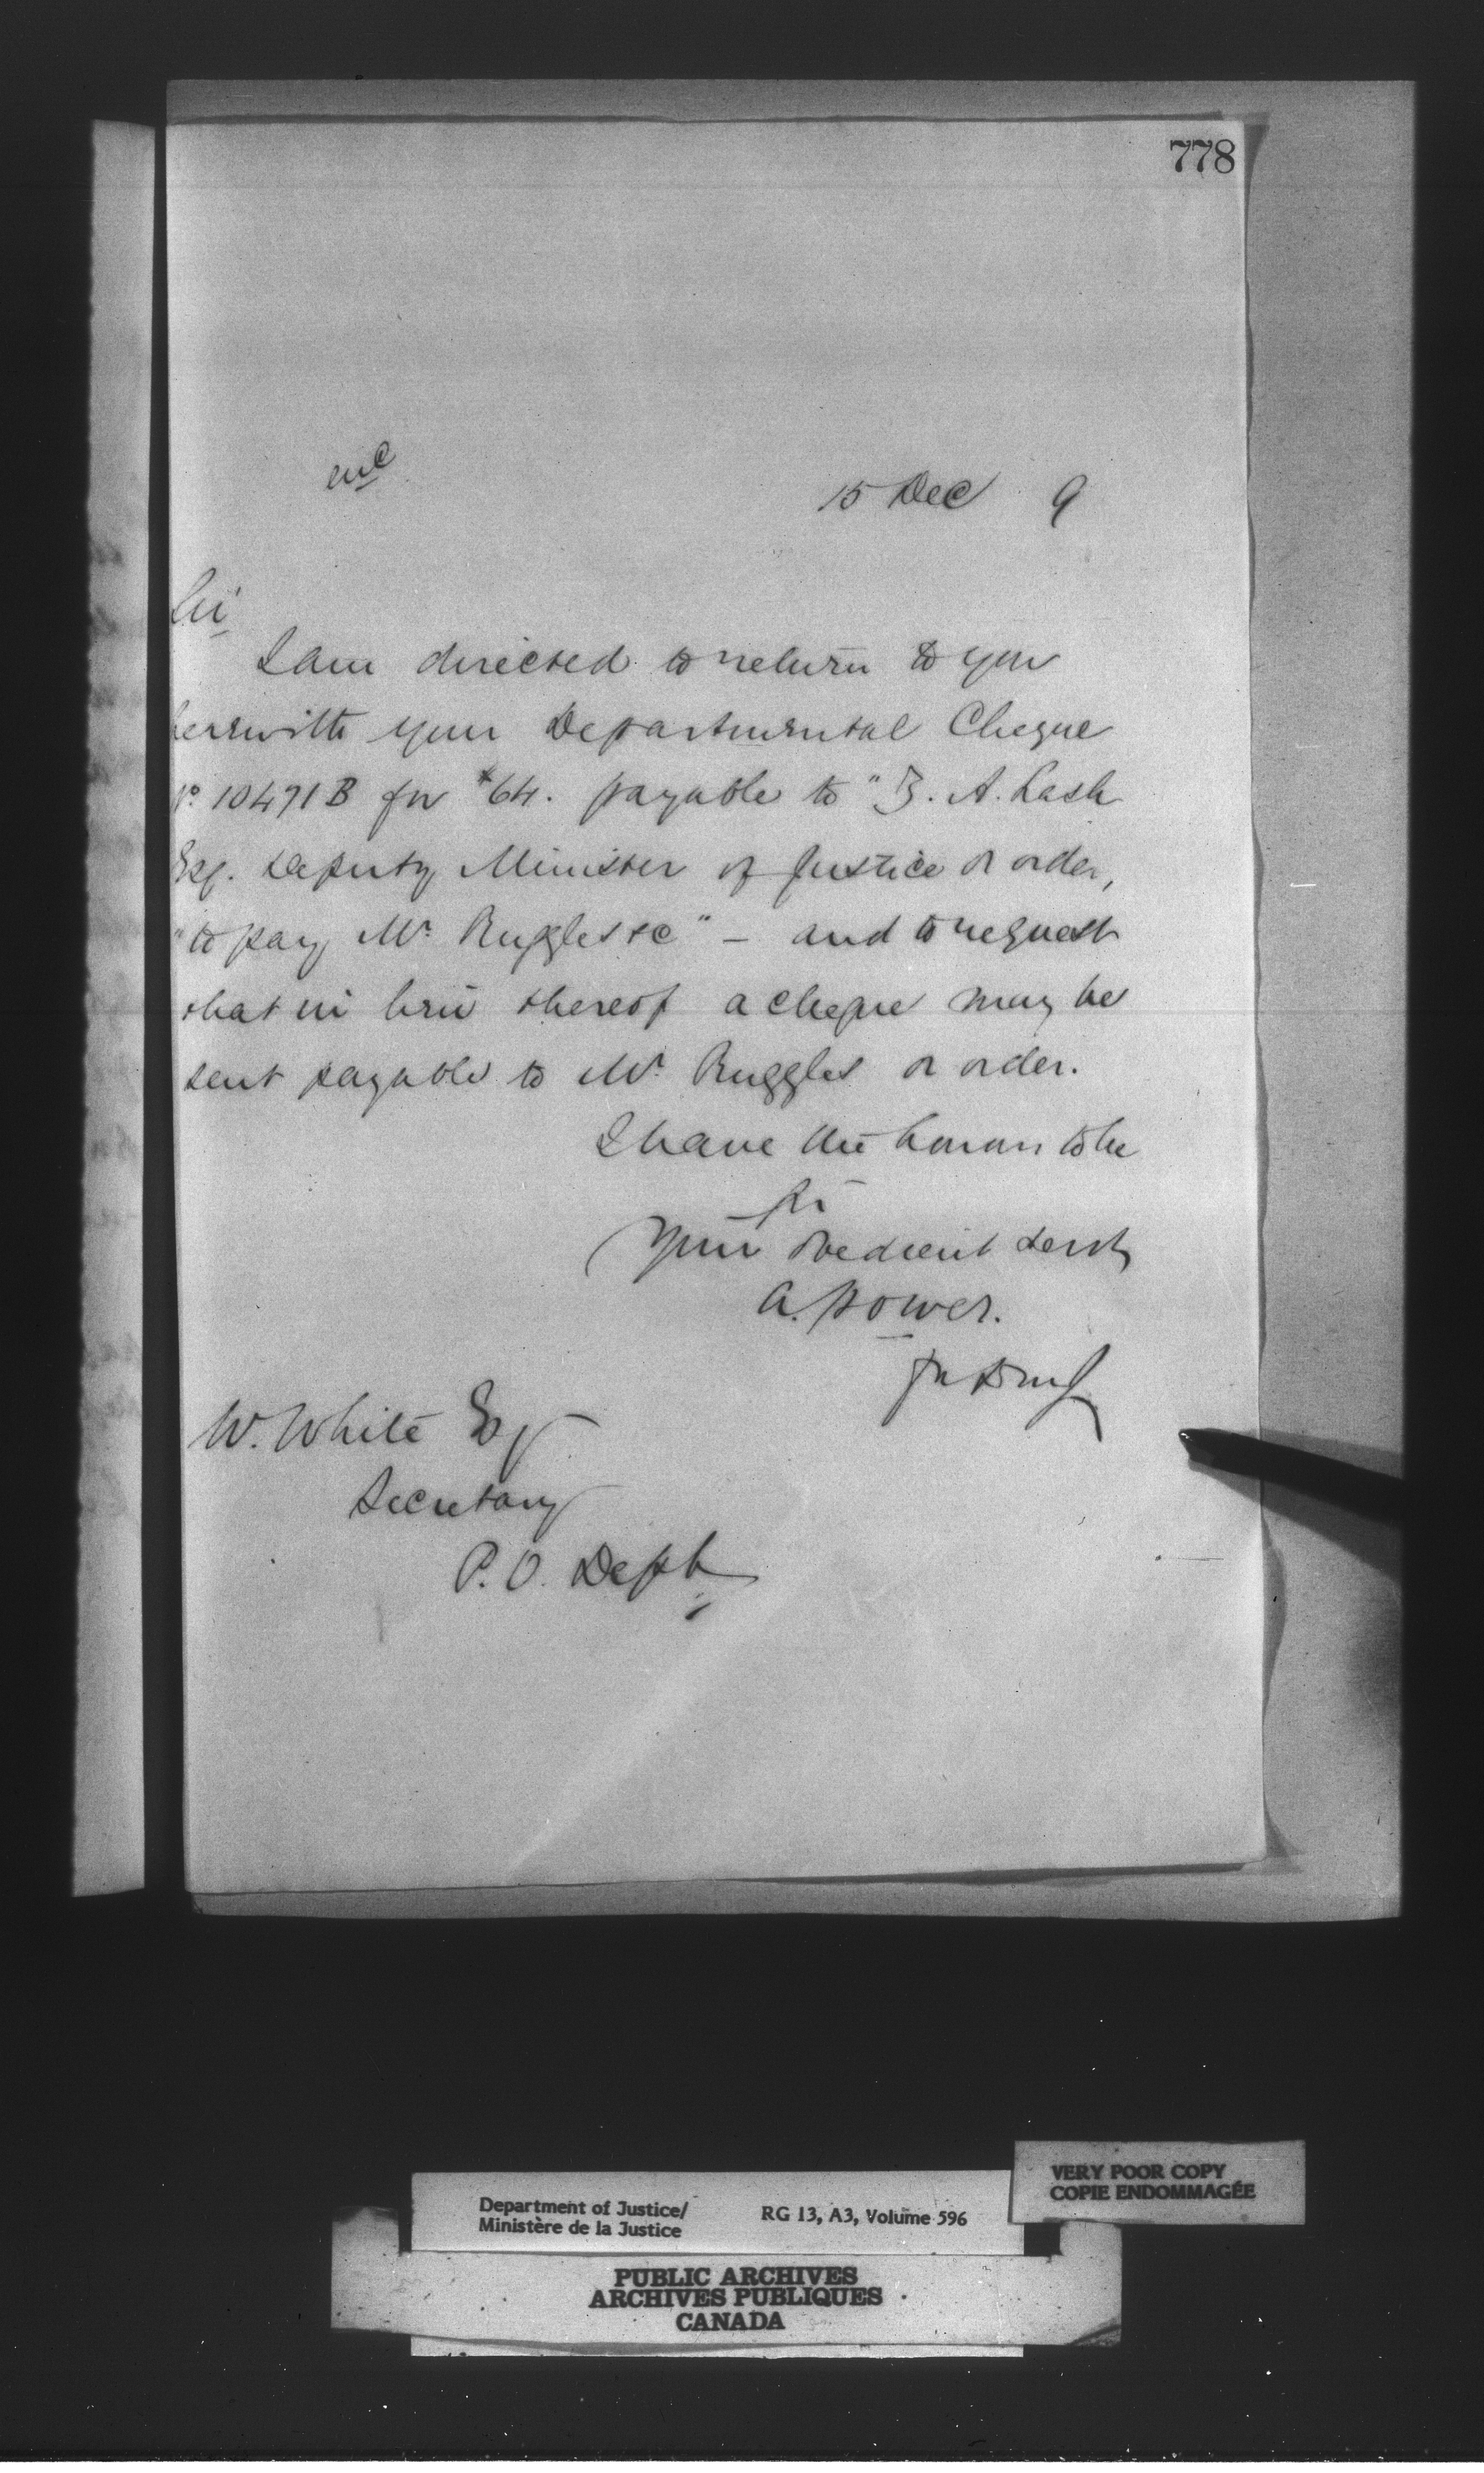 778
enc
15 Dec 9
Sir
I am directed to return to you
herewith your Departmental Cheque
No. 10471B for $64. payable to "Z. A. Lash
Esq. Deputy Minister of Justice or order,
"to pay Mr. Ruggles &c" – and to request
that in lieu thereof a cheque may be
sent payable to Mr. Ruggles or order.
I have the honour to be
Sir
Your obedient servt
A. Power.
for D m J
W. White Esq
Secretary
P. O. Dept
VERY POOR COPY
COPIE ENDOMMAGÉE
Department of Justice/
Ministère de la Justice
RG 13, A3, Volume 596
PUBLIC ARCHIVES
ARCHIVES PUBLIQUES
CANADA